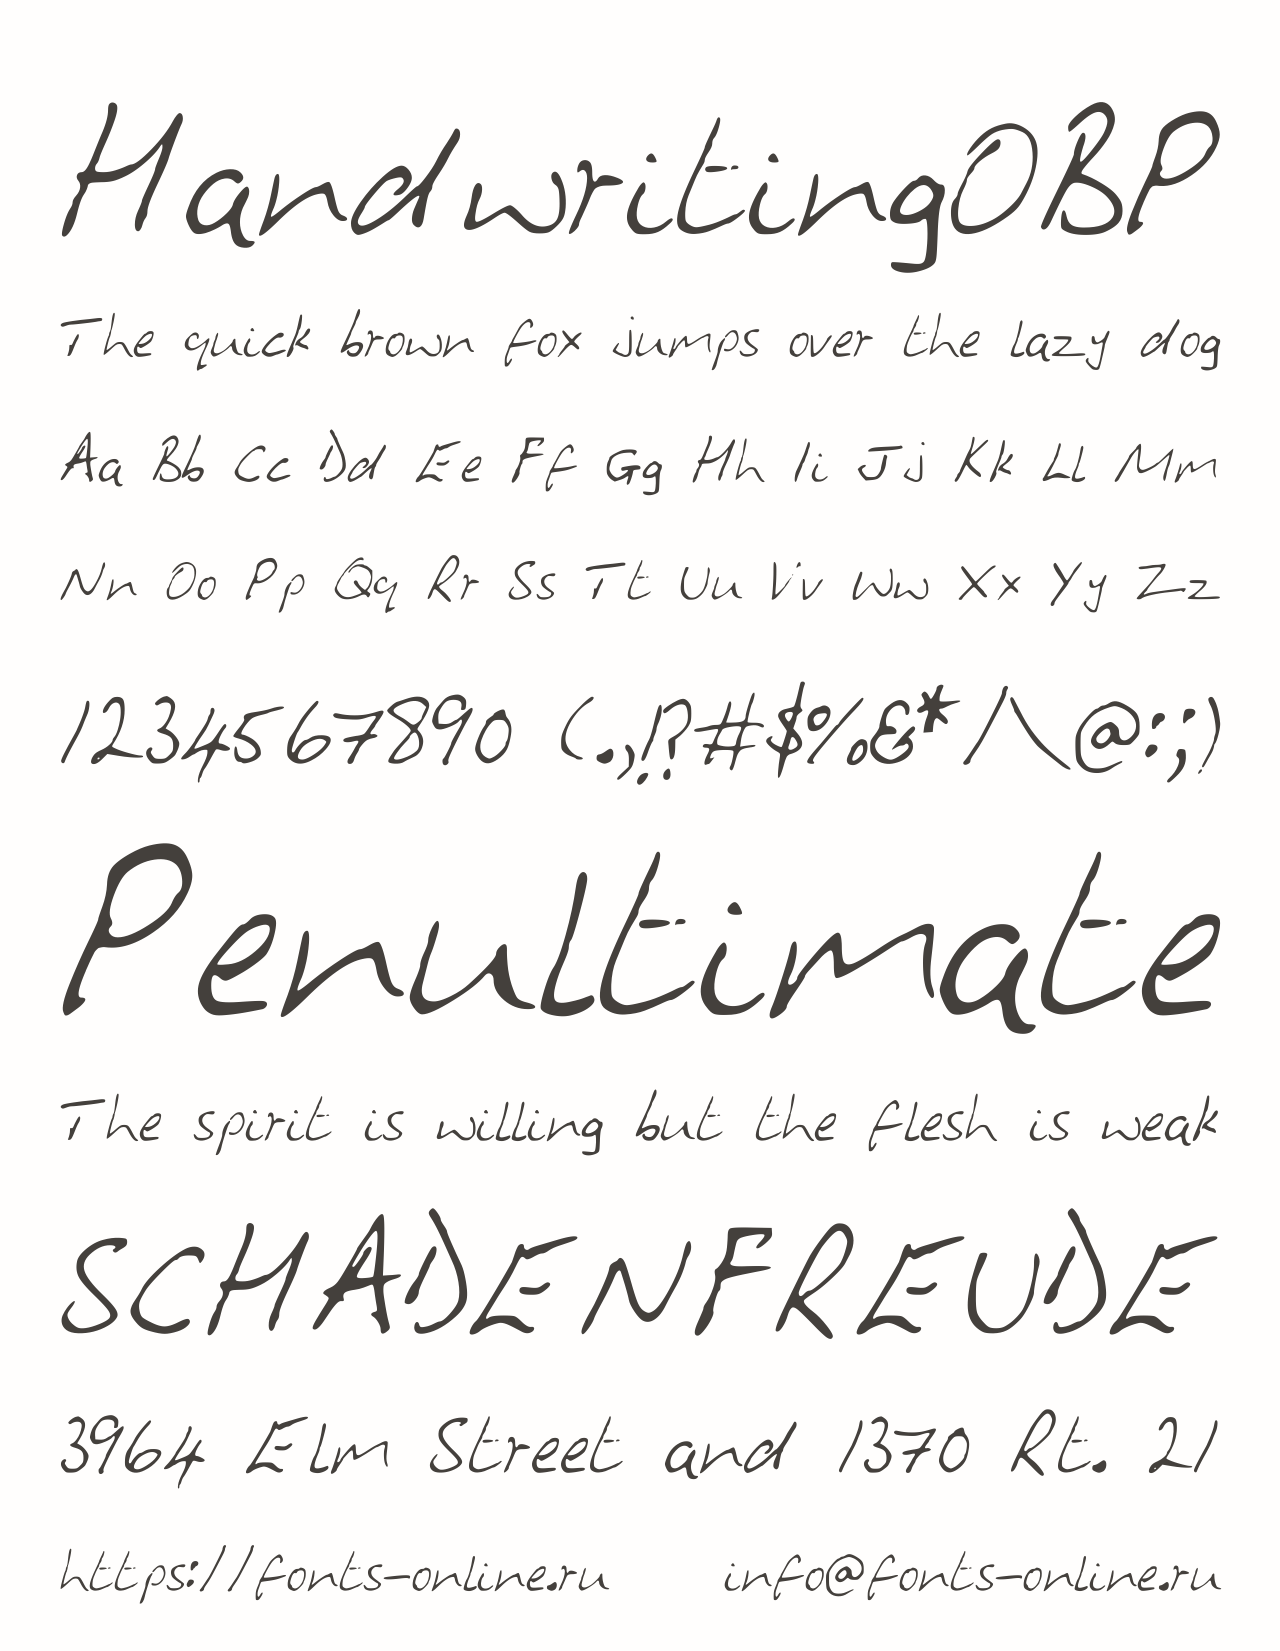 HandwritingOBP
The quick brown fox jumps over the lazy dog
Aa Bb Cc Dd Ee Ff Gg Hh Ii Jj Kk Ll Mm
Nn Oo Pp Qq Rr Ss Tt Uu Vv Ww Xx Yy Zz
1234567890 (.,!?#$%&*/\@:;)
Penultimate
The spirit is willing but the flesh is weak
SCHADENFREUDE
3964 Elm Street and 1370 Rt. 21
https://fonts-online.ru info@fonts-online.ru